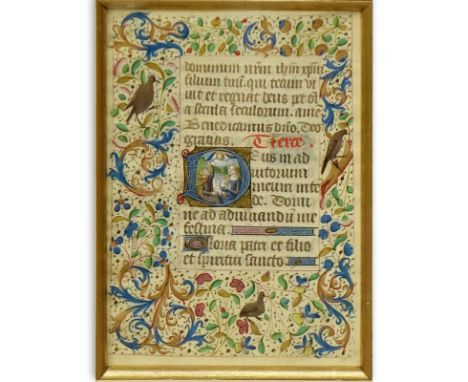 dominum nr̄m ihm̄ xp̄m
filium tuū. qui tecum vi
uit et regnat deus per oī
a secula seculorum. ame
Benedicamus dño. Deo
gratias. Tierce.
Deus in ad
iutorium
meum inte
de. Domi
ne ad adiuuandū me
festina.
Gloria patri et filio
et spiritui sancto.